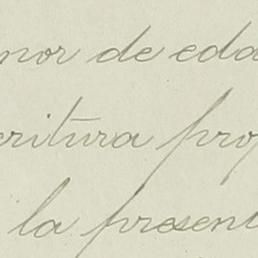 nor de eda
ritura pro
la presen